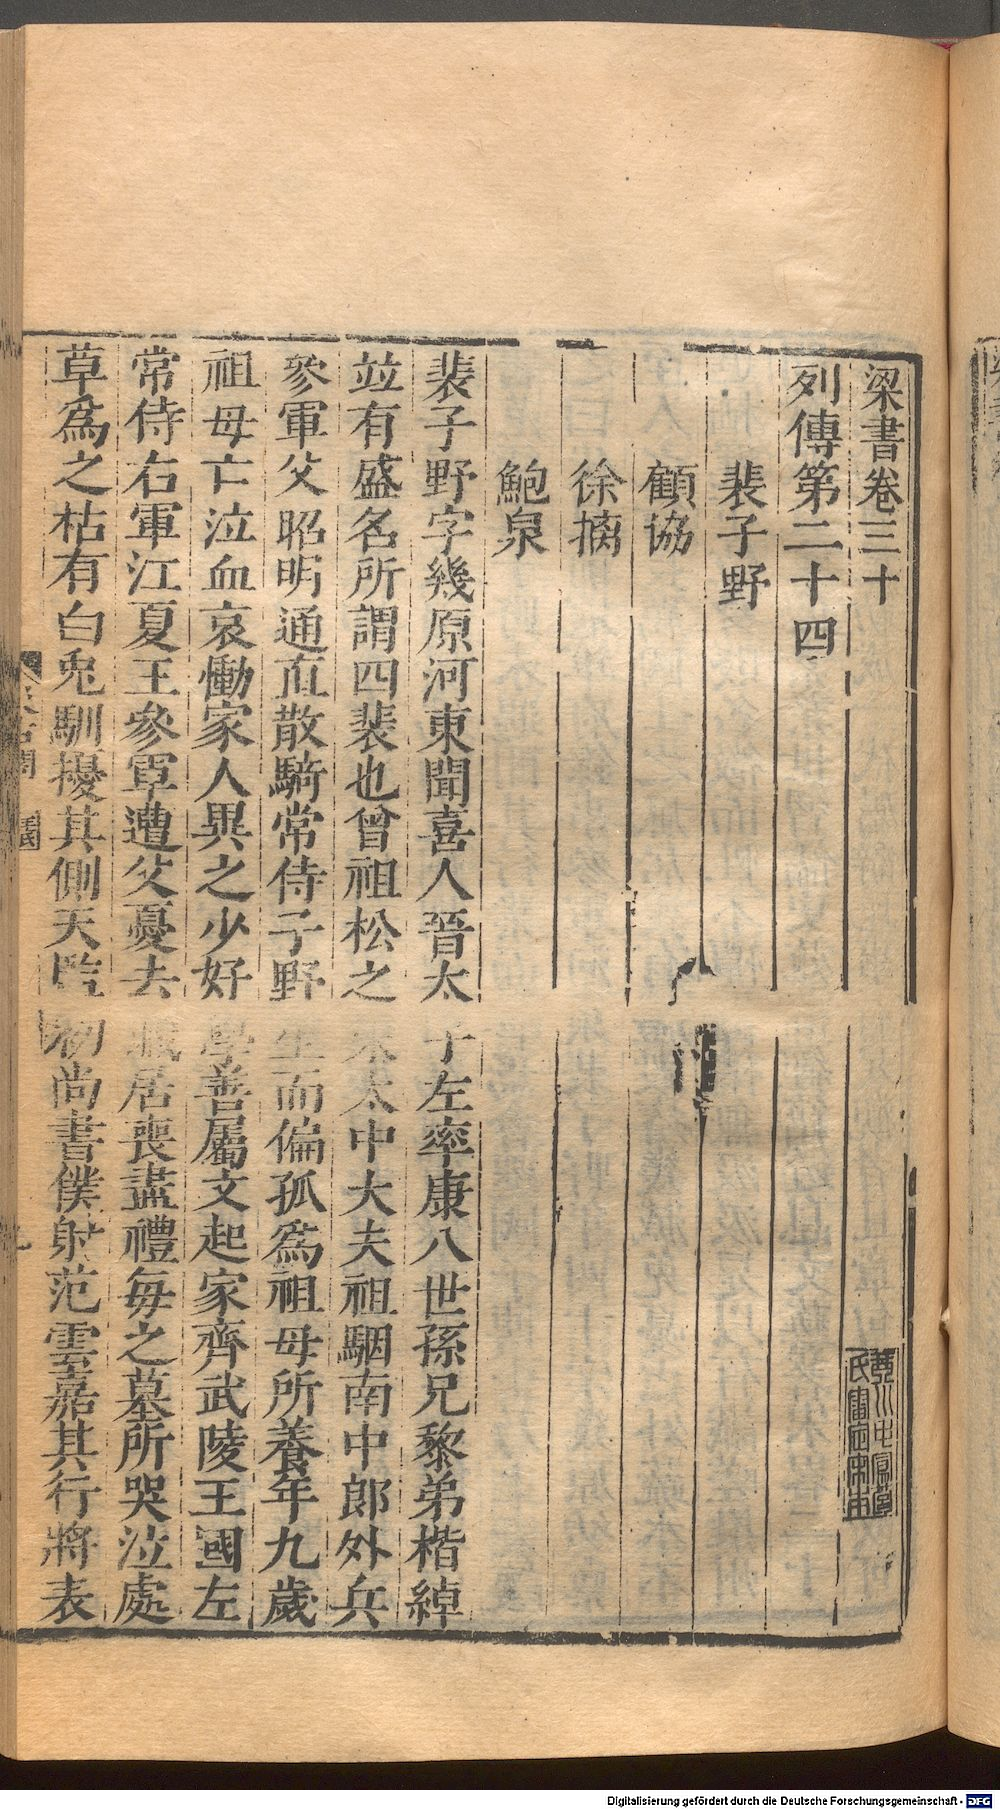 梁書卷三十
列傳第二十四
裴子野
顧協
徐摛
鮑泉
裴子野字幾原河東聞喜人晉太子左率康八世孫兄黎弟楷綽
竝有盛名所謂四裴也曾祖松之宋太中大夫祖駰南中郎外兵
參軍父昭明通直散騎常侍子野生而偏孤爲祖母所養年九歲
祖母亡泣血哀慟家人異之少好學善屬文起家齊武陵王國左
常侍右軍江夏王參軍遭父憂去職居喪盡禮每之墓所哭泣處
草爲之枯有白兎馴擾其側天監初尚書僕射范雲嘉其行將表
Digitalisierung gefördert durch die Deutsche Forschungsgemeinschaft - DFG